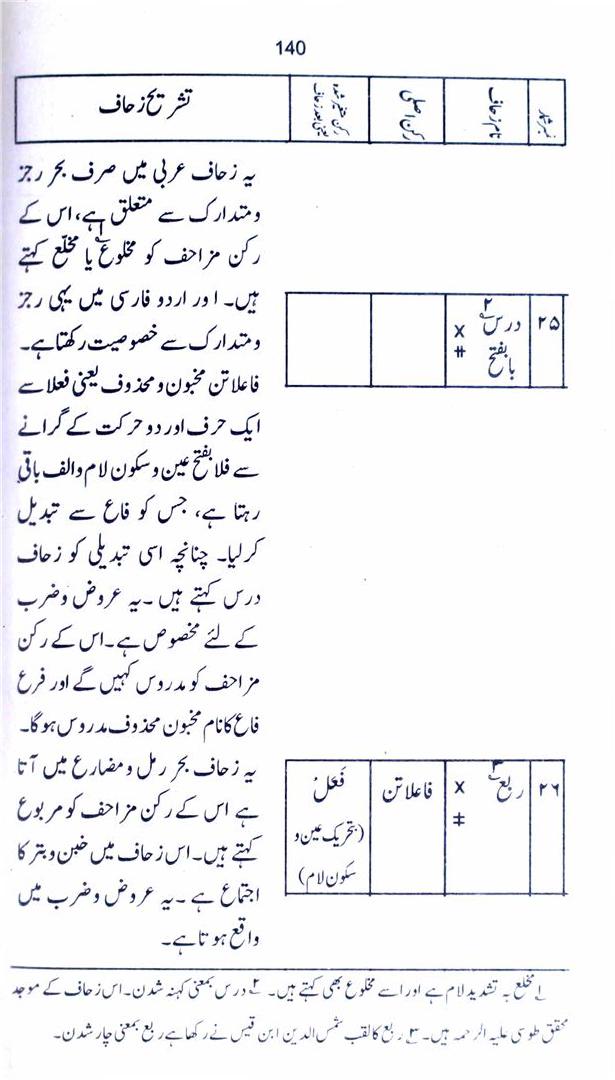 140
نمبر شمار | نام زحاف | رکن اصلی | رکن متغیر شدہ یعنی بعد زحاف | تشریح زحاف
یہ زحاف عربی میں صرف بحر رجز
ومتدارک سے متعلق ہے، اس کے
رکن مزاحف کو مخلوع۱ یا مخلّع کہتے
ہیں۔ اور اردو فارسی میں یہی رجز
ومتدارک سے خصوصیت رکھتا ہے۔
۲۵ | درس۲ بالفتح x #
فاعلاتن مخبون ومحذوف یعنی فعلا سے
ایک حرف اور دو حرکت کے گرانے
سے فلا بفتح عین وسکون لام والف باقی
رہتا ہے، جس کو فاع سے تبدیل
کرلیا۔ چنانچہ اسی تبدیلی کو زحاف
درس کہتے ہیں۔ یہ عروض وضرب
کے لئے مخصوص ہے۔ اس کے رکن
مزاحف کو مدروس کہیں گے اور فرع
فاع کا نام مخبون محذوف مدروس ہوگا۔
۲۶ | ربع۳ x ‡ | فاعلاتن | فَعَلْ (بتحریک عین و سکون لام)
یہ زحاف بحر رمل ومضارع میں آتا
ہے اس کے رکن مزاحف کو مربوع
کہتے ہیں۔ اس زحاف میں خبن وبتر کا
اجتماع ہے۔ یہ عروض وضرب میں
واقع ہوتا ہے۔
۱ مخلع بہ تشدید لام ہے اور اسے مخلوع بھی کہتے ہیں۔ ۲ درس بمعنی کہنہ شدن۔ اس زحاف کے موجد
محقق طوسی علیہ الرحمہ ہیں۔ ۳ ربع کا لقب شمس الدین ابن قیس نے رکھا ہے ربع بمعنی چار شدن۔